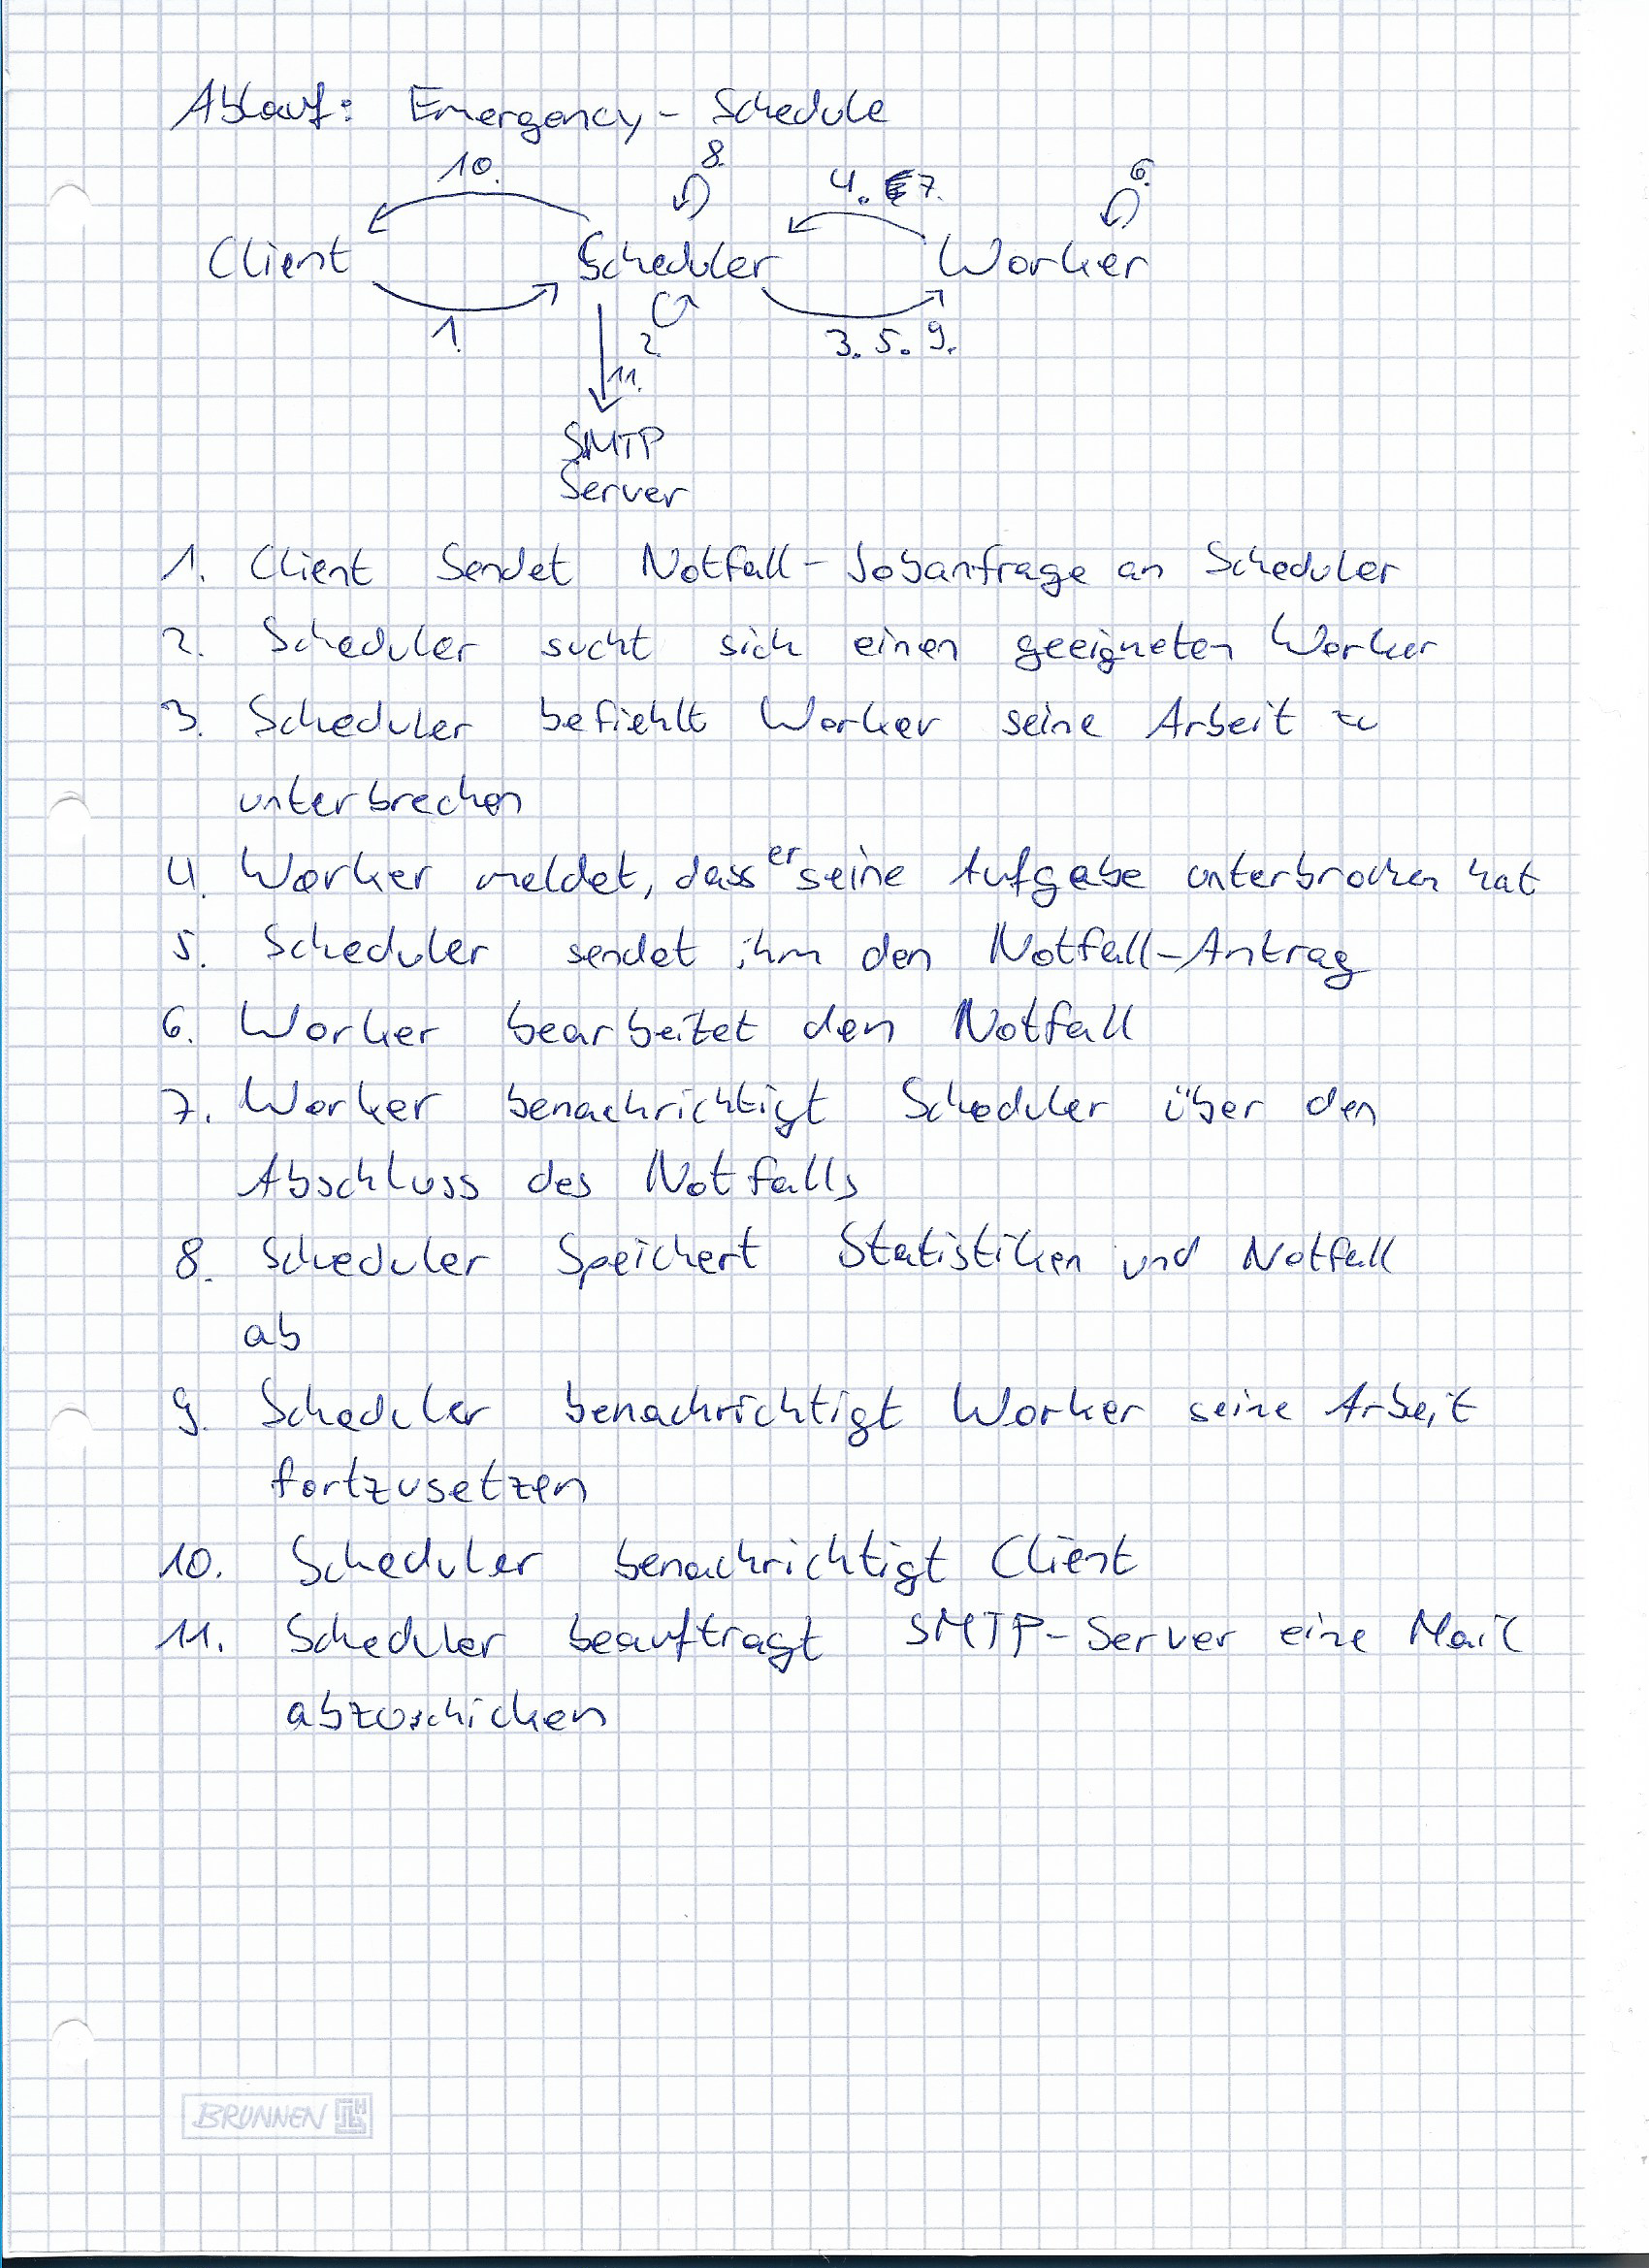 Ablauf: Emergency - Schedule
10. 8. 4. 7. 6.
Client Scheduler Worker
1. 2. 3. 5. 9.
11.
SMTP
Server
1. Client Sendet Notfall - Jobanfrage an Scheduler
2. Scheduler sucht sich einen geeigneten Worker
3. Scheduler befiehlt Worker seine Arbeit zu
unterbrechen
4. Worker meldet, dass er seine Aufgabe unterbrochen hat
5. Scheduler sendet ihm den Notfall-Antrag
6. Worker bearbeitet den Notfall
7. Worker benachrichtigt Scheduler über den
Abschluss des Notfalls
8. Scheduler Speichert Statistiken und Notfall
ab
9. Scheduler benachrichtigt Worker seine Arbeit
fortzusetzen
10. Scheduler benachrichtigt Client
11. Scheduler beauftragt SMTP-Server eine Mail
abzuschicken
BRUNNEN